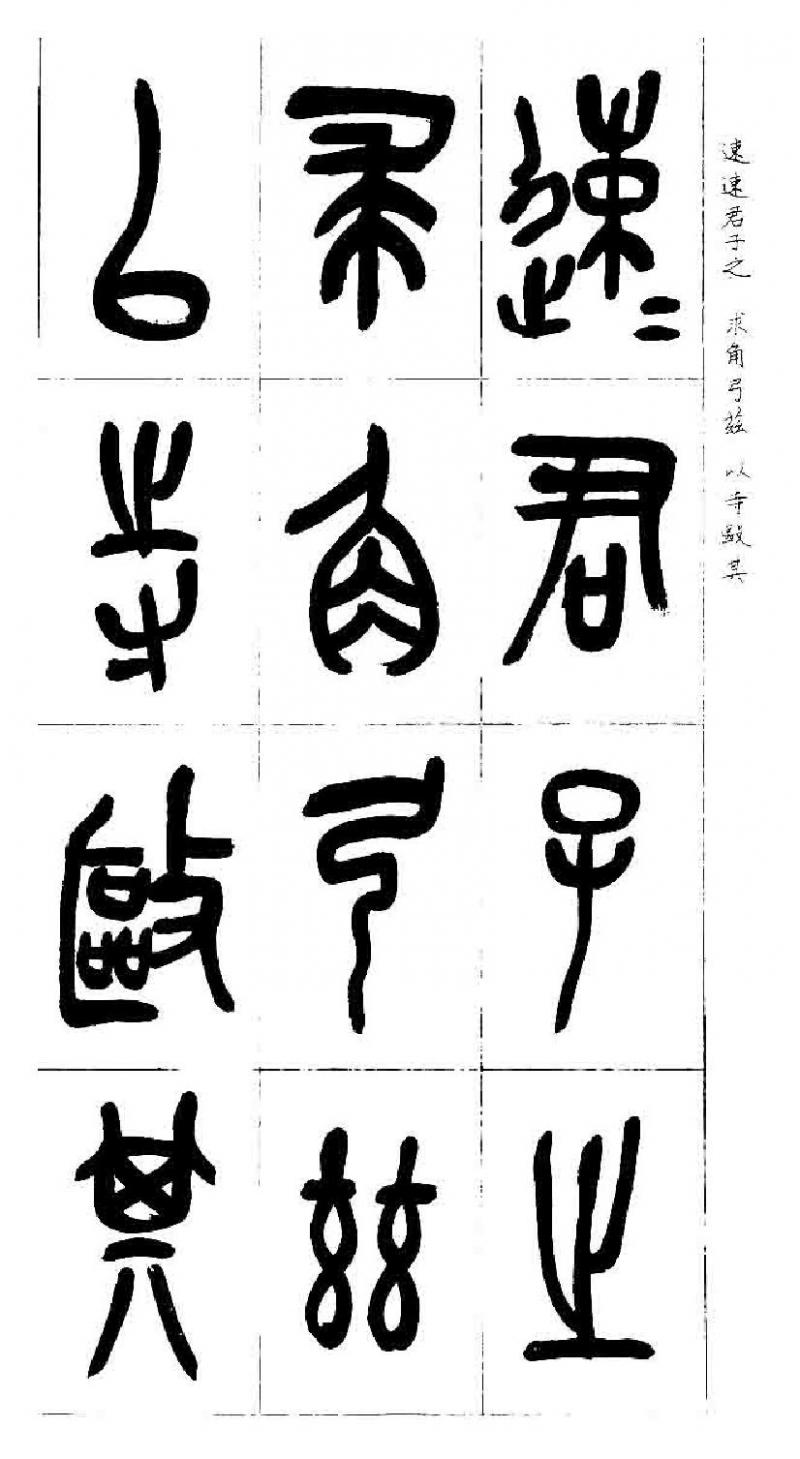 速速君子之 求角弓茲 以寺敺其
速〻君子之
求角弓茲
以寺敺其